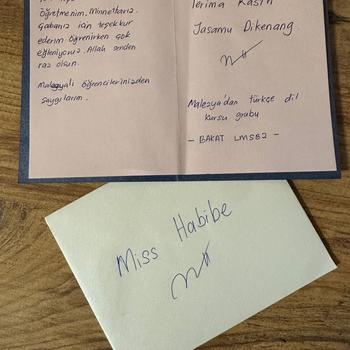 Öğretmenim. Minnettarız.
Çabanız için teşekkür
ederim. Öğrenirken çok
eğleniyoruz. Allah senden
razı olsun.
Malezyalı öğrencilerinizden
saygılarım.
Terima Kasih
Jasamu Dikenang
Malezya'dan türkçe dil
kursu grubu
- BAKAT LMSBJ -
Miss Habibe